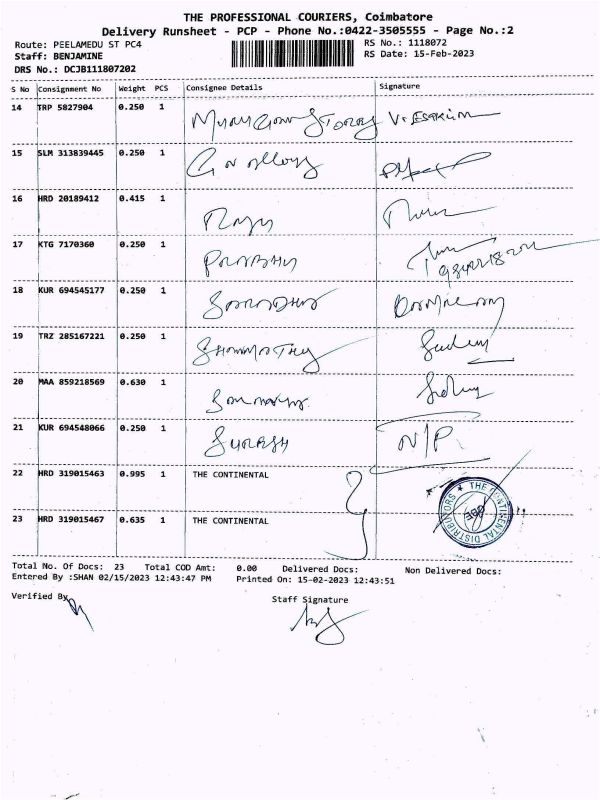 THE PROFESSIONAL COURIERS, Coimbatore
Delivery Runsheet - PCP - Phone No.:0422-3505555 - Page No.:2
Route: PEELAMEDU ST PC4 RS No.: 1118072
Staff: BENJAMINE RS Date: 15-Feb-2023
DRS No.: DCJB111807202
S No Consignment No Weight PCS Consignee Details Signature
14 TRP 5827904 0.250 1
15 SLM 313839445 0.250 1
16 HRD 20189412 0.415 1 Raju
17 KTG 7170360 0.250 1 PRABHU
18 KUR 694545177 0.250 1
19 TRZ 285167221 0.250 1
20 MAA 859218569 0.630 1
21 KUR 694548066 0.250 1 SURESH N/P
22 HRD 319015463 0.995 1 THE CONTINENTAL
23 HRD 319015467 0.635 1 THE CONTINENTAL
THE CONTINENTAL DISTRIBUTORS
CBE
Total No. Of Docs: 23 Total COD Amt: 0.00 Delivered Docs: Non Delivered Docs:
Entered By :SHAN 02/15/2023 12:43:47 PM Printed On: 15-02-2023 12:43:51
Verified By
Staff Signature